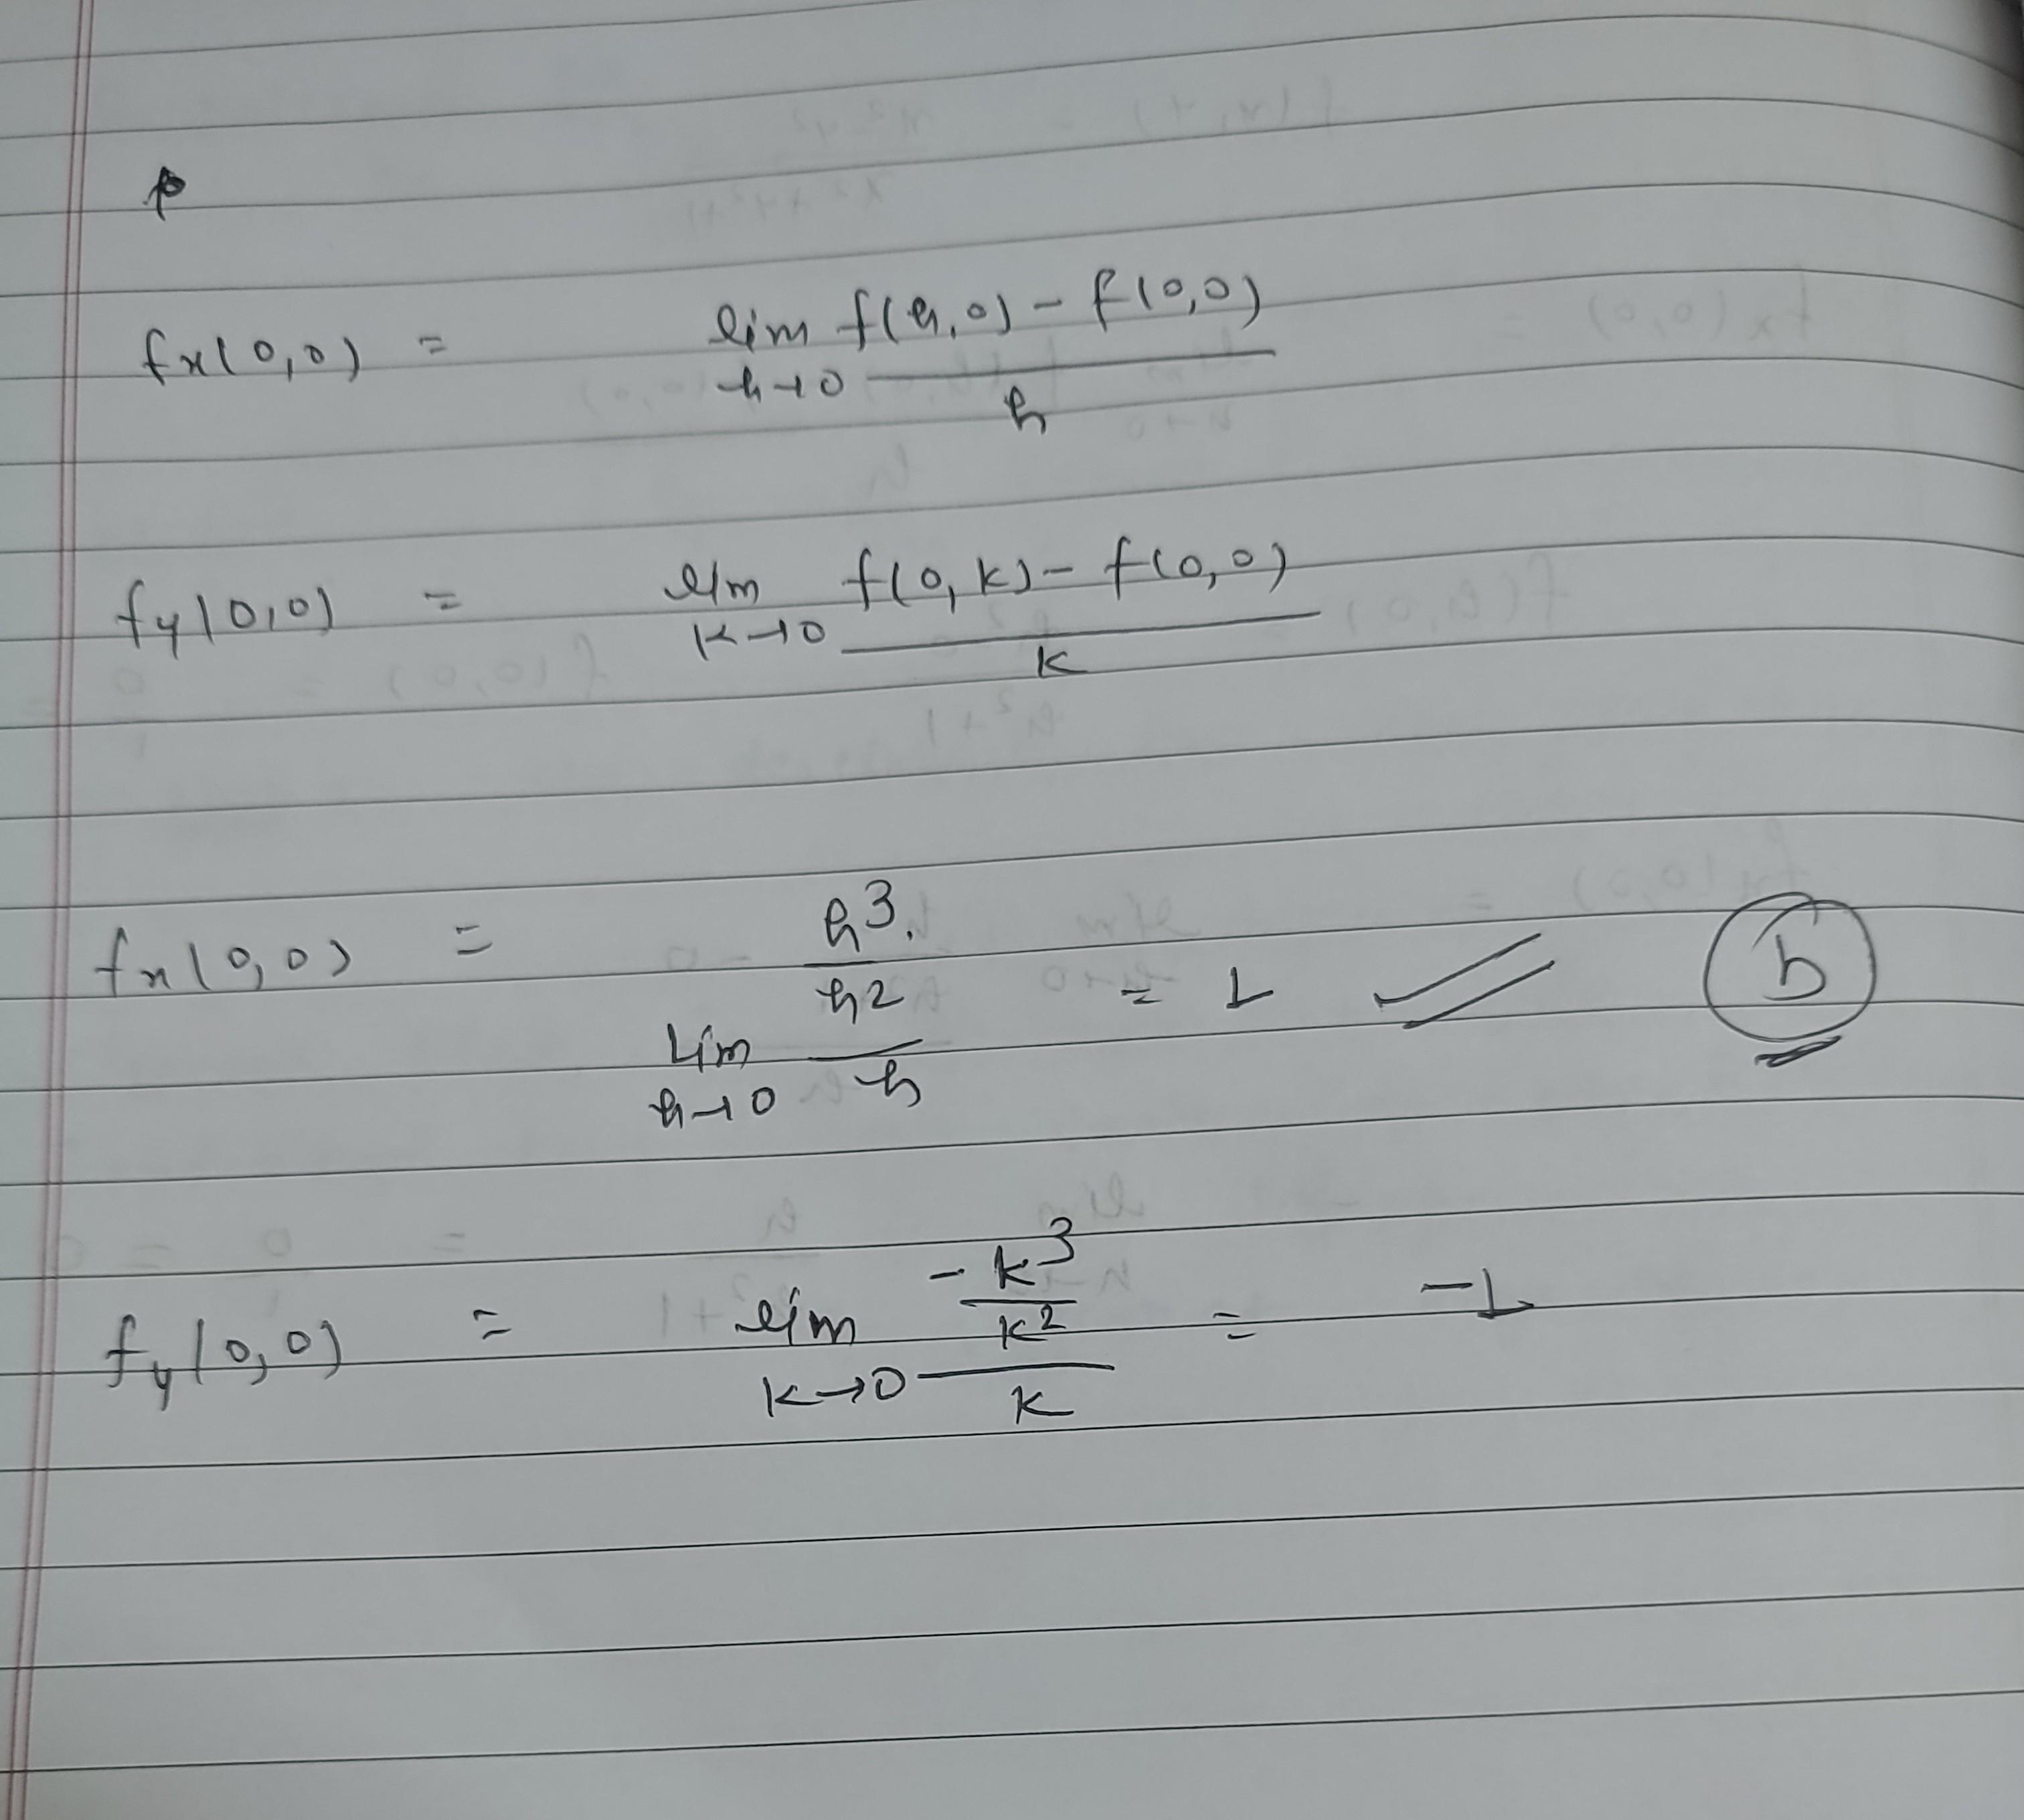 fx(0,0) = lim h→0 f(h,0) - f(0,0) / h
fy(0,0) = lim k→0 f(0,k) - f(0,0) / k
fx(0,0) = lim h→0 h³/h² / h = 1 b
fy(0,0) = lim k→0 -k³/k² / k = -1